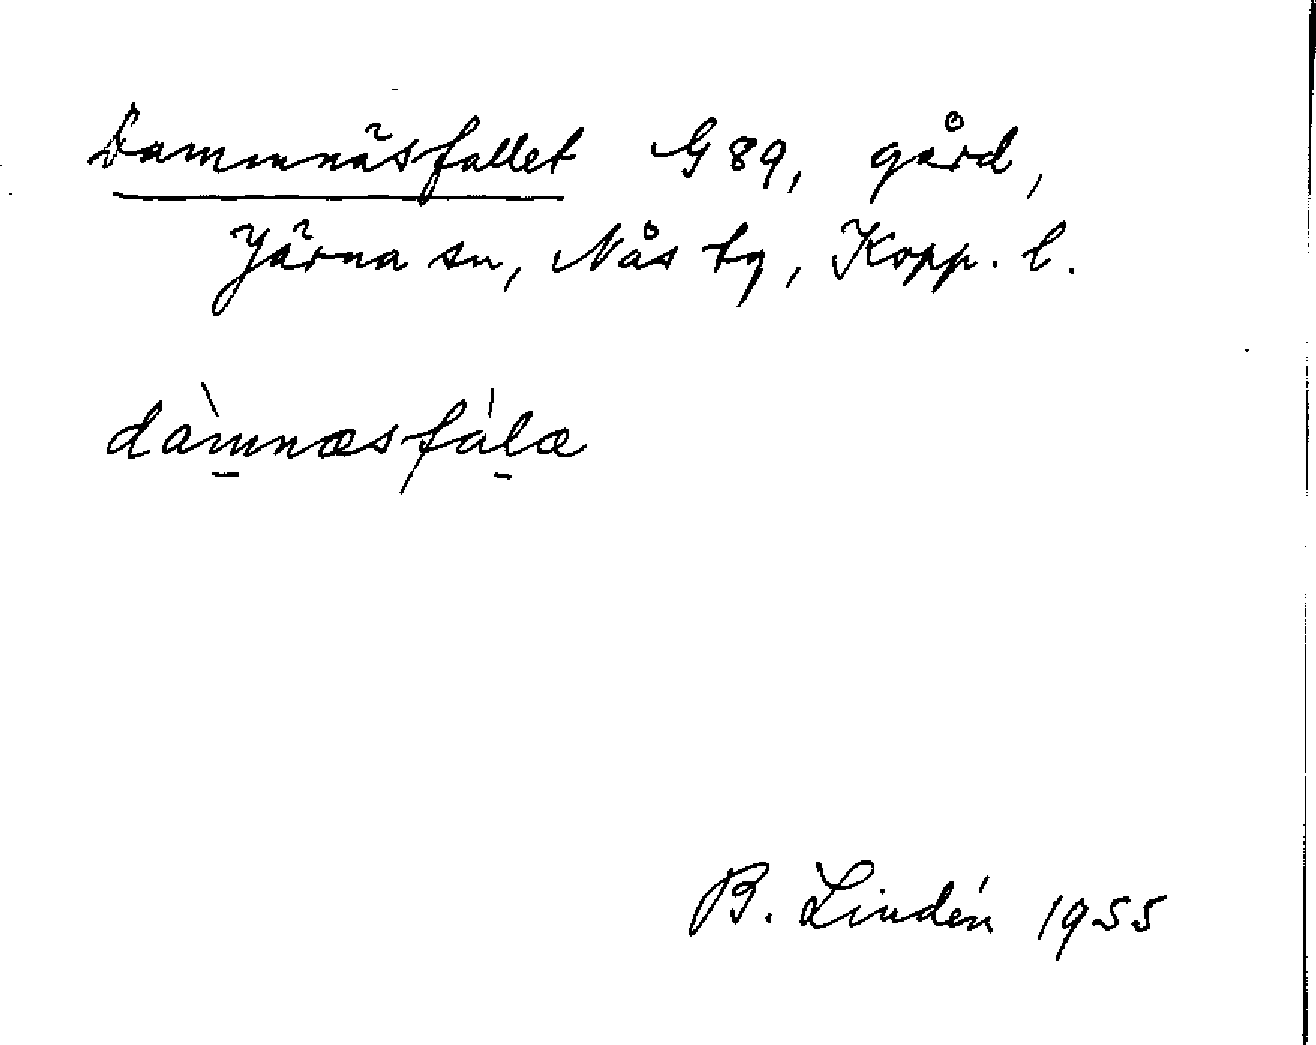 Dammnäsfallet G 89, gård,
Järna sn, Nås tg, Kopp. l.
dàm̱næsfáḻæ
B. Lindén 1955